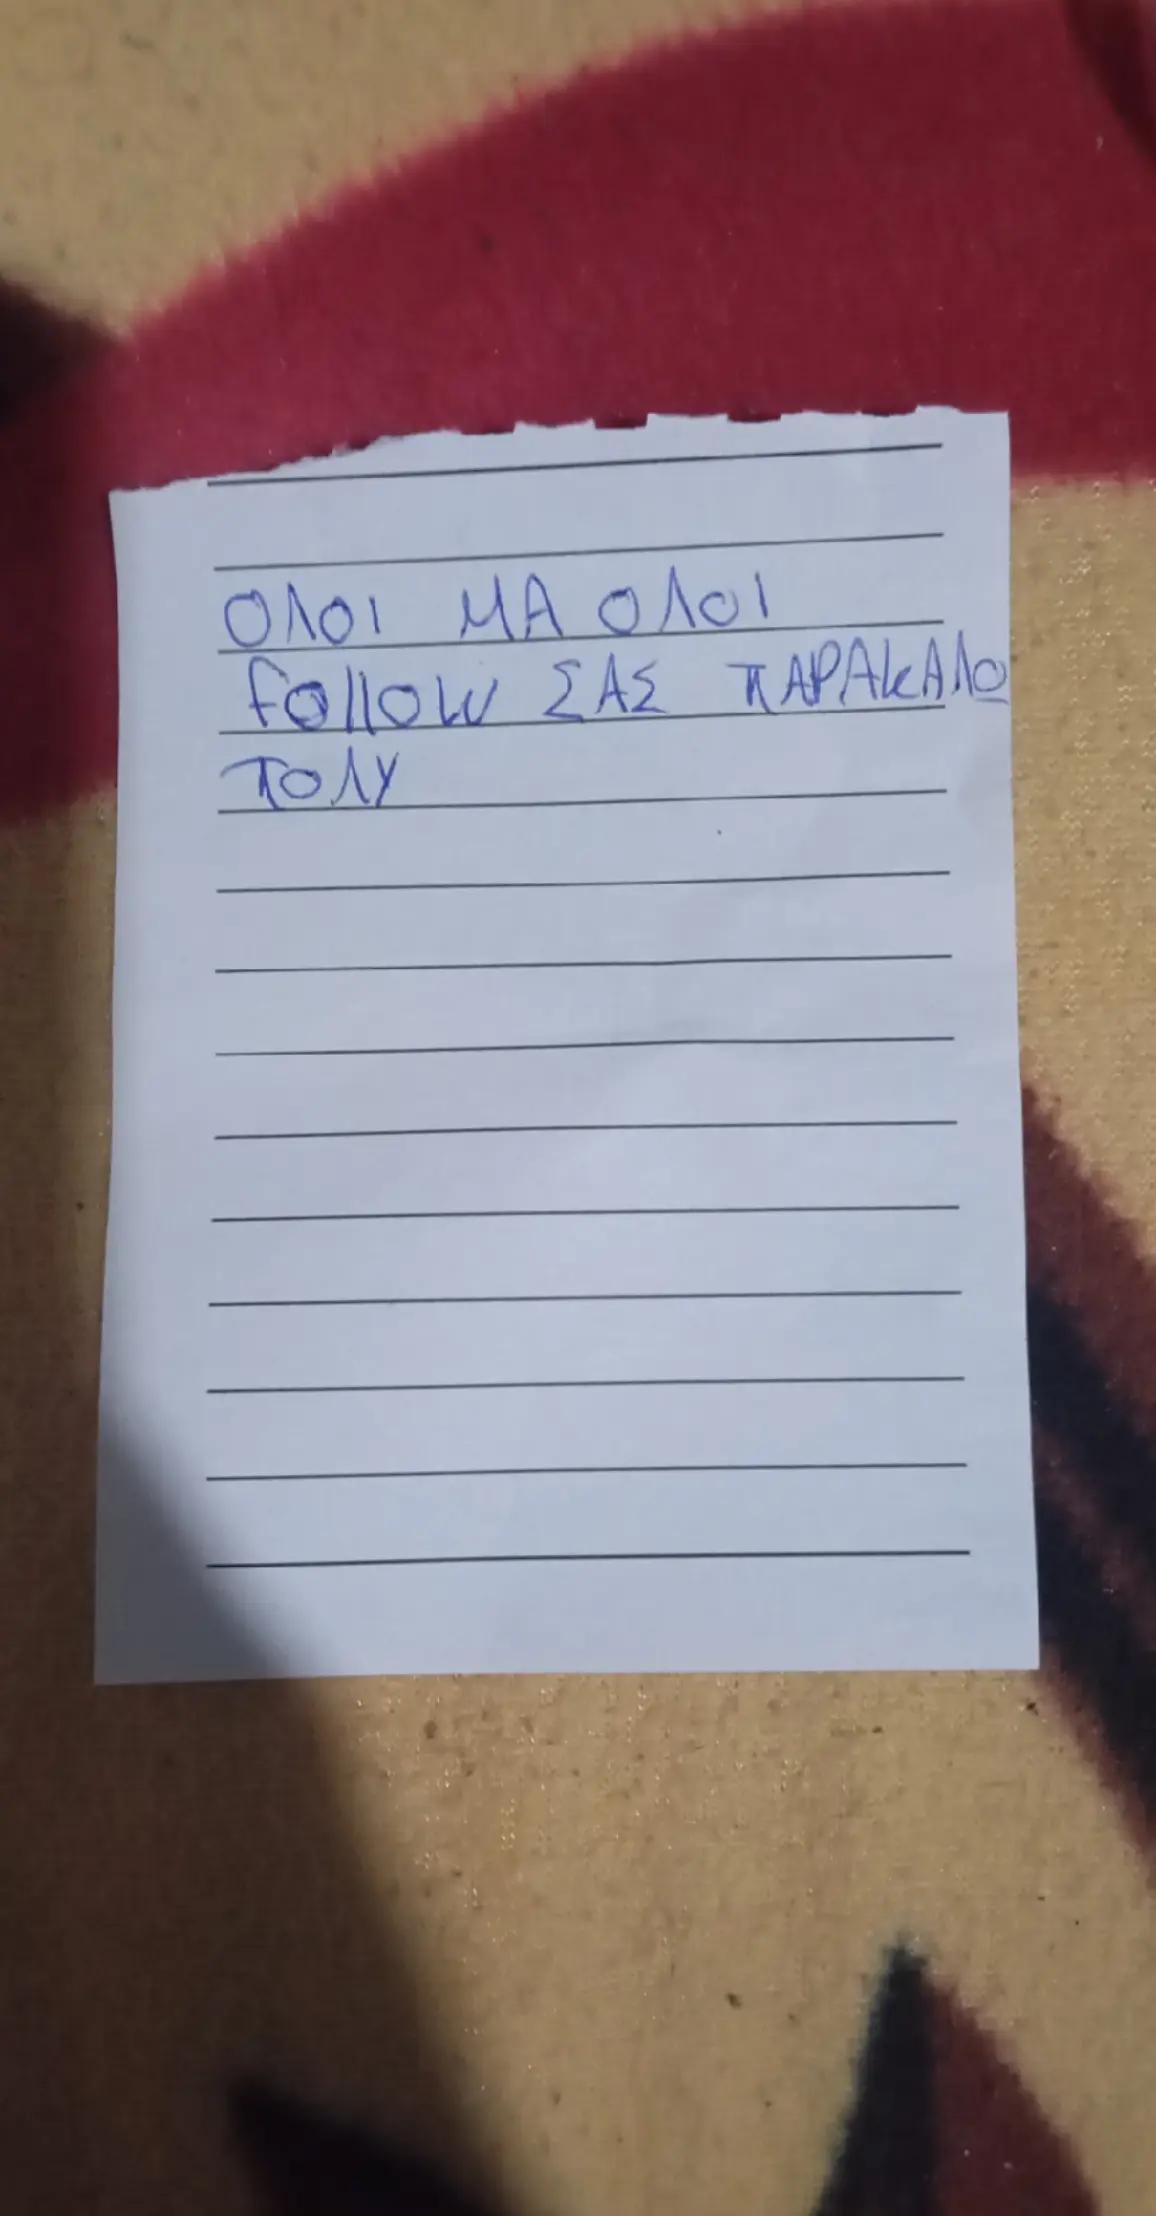 ΟΛΟΙ ΜΑ ΟΛΟΙ
follow ΣΑΣ ΠΑΡΑΚΑΛΩ
ΠΟΛΥ